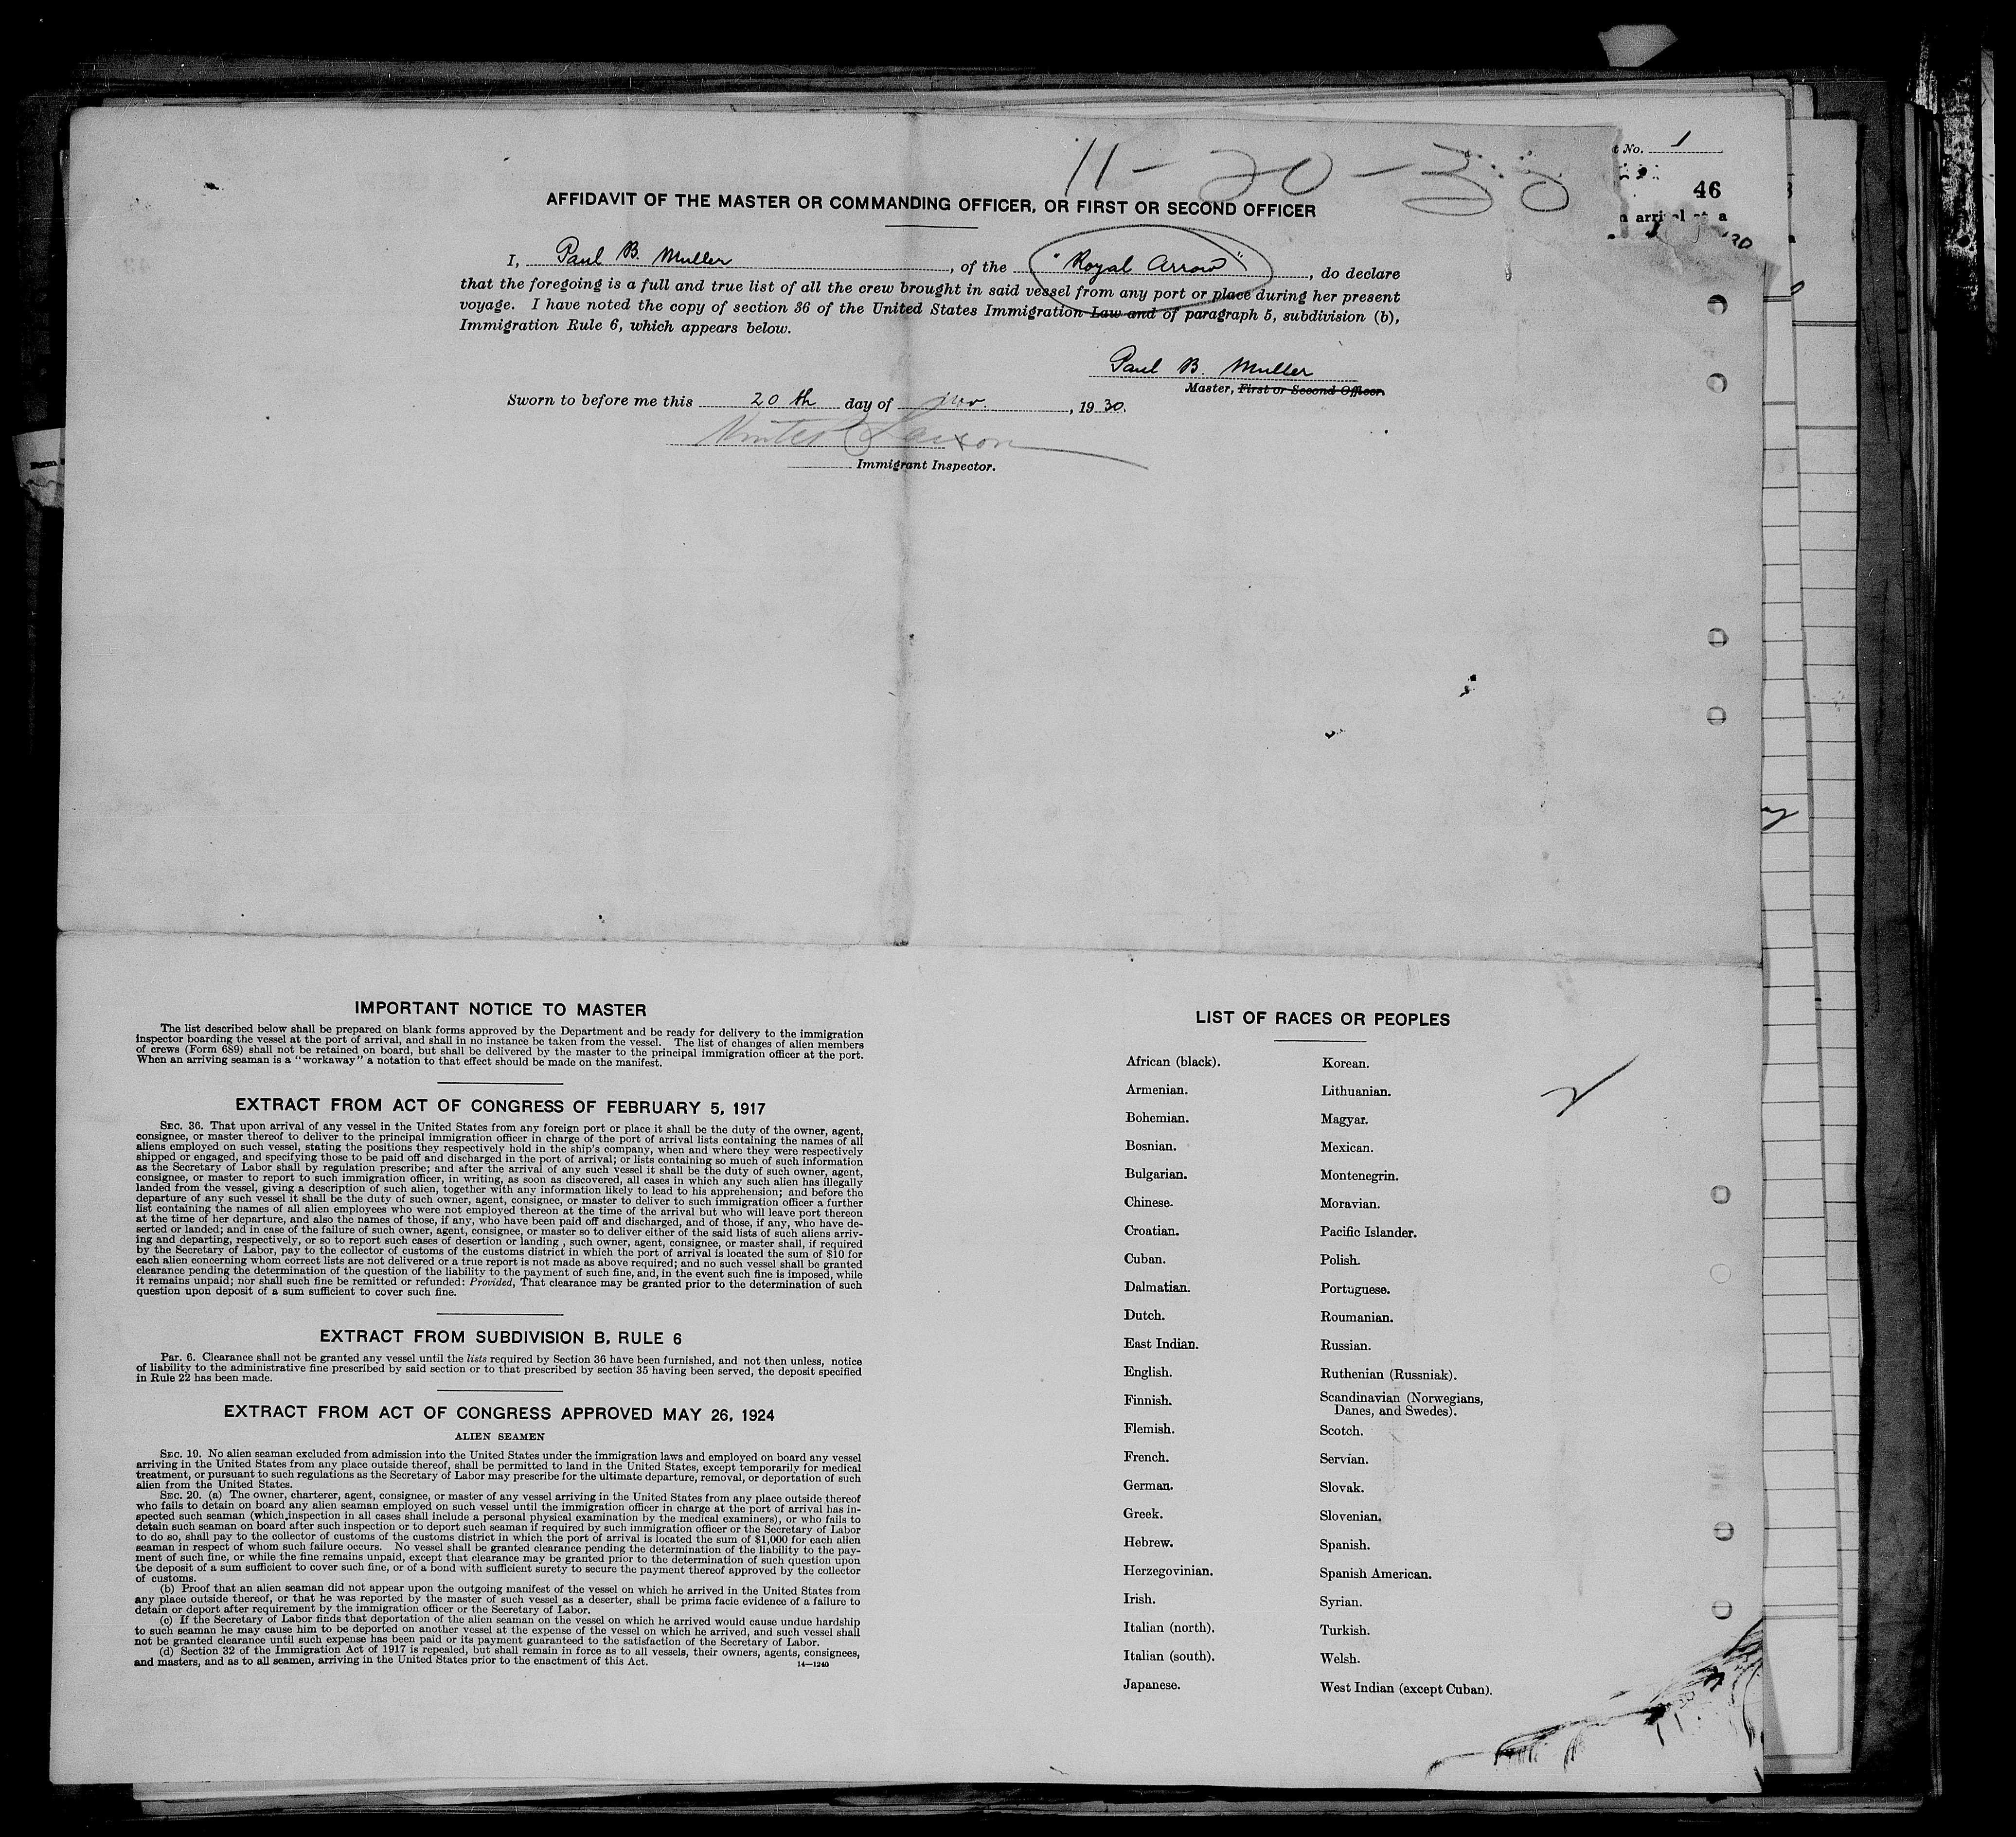 11-20-30
t No. 1
46
AFFIDAVIT OF THE MASTER OR COMMANDING OFFICER, OR FIRST OR SECOND OFFICER
I, Paul B. Muller, of the "Royal Arrow", do declare
that the foregoing is a full and true list of all the crew brought in said vessel from any port or place during her present
voyage. I have noted the copy of section 36 of the United States Immigration Law and of paragraph 5, subdivision (b),
Immigration Rule 6, which appears below.
Paul B. Muller
Master, First or Second Officer.
Sworn to before me this 20th day of Nov., 1930.
Immigrant Inspector.
IMPORTANT NOTICE TO MASTER
The list described below shall be prepared on blank forms approved by the Department and be ready for delivery to the immigration
inspector boarding the vessel at the port of arrival, and shall in no instance be taken from the vessel. The list of changes of alien members
of crews (Form 689) shall not be retained on board, but shall be delivered by the master to the principal immigration officer at the port.
When an arriving seaman is a "workaway" a notation to that effect should be made on the manifest.
EXTRACT FROM ACT OF CONGRESS OF FEBRUARY 5, 1917
SEC. 36. That upon arrival of any vessel in the United States from any foreign port or place it shall be the duty of the owner, agent,
consignee, or master thereof to deliver to the principal immigration officer in charge of the port of arrival lists containing the names of all
aliens employed on such vessel, stating the positions they respectively hold in the ship's company, when and where they were respectively
shipped or engaged, and specifying those to be paid off and discharged in the port of arrival; or lists containing so much of such information
as the Secretary of Labor shall by regulation prescribe; and after the arrival of any such vessel it shall be the duty of such owner, agent,
consignee, or master to report to such immigration officer, in writing, as soon as discovered, all cases in which any such alien has illegally
landed from the vessel, giving a description of such alien, together with any information likely to lead to his apprehension; and before the
departure of any such vessel it shall be the duty of such owner, agent, consignee, or master to deliver to such immigration officer a further
list containing the names of all alien employees who were not employed thereon at the time of the arrival but who will leave port thereon
at the time of her departure, and also the names of those, if any, who have been paid off and discharged, and of those, if any, who have de-
serted or landed; and in case of the failure of such owner, agent, consignee, or master so to deliver either of the said lists of such aliens arriv-
ing and departing, respectively, or so to report such cases of desertion or landing , such owner, agent, consignee, or master shall, if required
by the Secretary of Labor, pay to the collector of customs of the customs district in which the port of arrival is located the sum of $10 for
each alien concerning whom correct lists are not delivered or a true report is not made as above required; and no such vessel shall be granted
clearance pending the determination of the question of the liability to the payment of such fine, and, in the event such fine is imposed, while
it remains unpaid; nor shall such fine be remitted or refunded: Provided, That clearance may be granted prior to the determination of such
question upon deposit of a sum sufficient to cover such fine.
EXTRACT FROM SUBDIVISION B, RULE 6
Par. 6. Clearance shall not be granted any vessel until the lists required by Section 36 have been furnished, and not then unless, notice
of liability to the administrative fine prescribed by said section or to that prescribed by section 35 having been served, the deposit specified
in Rule 22 has been made.
EXTRACT FROM ACT OF CONGRESS APPROVED MAY 26, 1924
ALIEN SEAMEN
SEC. 19. No alien seaman excluded from admission into the United States under the immigration laws and employed on board any vessel
arriving in the United States from any place outside thereof, shall be permitted to land in the United States, except temporarily for medical
treatment, or pursuant to such regulations as the Secretary of Labor may prescribe for the ultimate departure, removal, or deportation of such
alien from the United States.
SEC. 20. (a) The owner, charterer, agent, consignee, or master of any vessel arriving in the United States from any place outside thereof
who fails to detain on board any alien seaman employed on such vessel until the immigration officer in charge at the port of arrival has in-
spected such seaman (which inspection in all cases shall include a personal physical examination by the medical examiners), or who fails to
detain such seaman on board after such inspection or to deport such seaman if required by such immigration officer or the Secretary of Labor
to do so, shall pay to the collector of customs of the customs district in which the port of arrival is located the sum of $1,000 for each alien
seaman in respect of whom such failure occurs. No vessel shall be granted clearance pending the determination of the liability to the pay-
ment of such fine, or while the fine remains unpaid, except that clearance may be granted prior to the determination of such question upon
the deposit of a sum sufficient to cover such fine, or of a bond with sufficient surety to secure the payment thereof approved by the collector
of customs.
(b) Proof that an alien seaman did not appear upon the outgoing manifest of the vessel on which he arrived in the United States from
any place outside thereof, or that he was reported by the master of such vessel as a deserter, shall be prima facie evidence of a failure to
detain or deport after requirement by the immigration officer or the Secretary of Labor.
(c) If the Secretary of Labor finds that deportation of the alien seaman on the vessel on which he arrived would cause undue hardship
to such seaman he may cause him to be deported on another vessel at the expense of the vessel on which he arrived, and such vessel shall
not be granted clearance until such expense has been paid or its payment guaranteed to the satisfaction of the Secretary of Labor.
(d) Section 32 of the Immigration Act of 1917 is repealed, but shall remain in force as to all vessels, their owners, agents, consignees,
and masters, and as to all seamen, arriving in the United States prior to the enactment of this Act.
14—1240
LIST OF RACES OR PEOPLES
African (black).
Armenian.
Bohemian.
Bosnian.
Bulgarian.
Chinese.
Croatian.
Cuban.
Dalmatian.
Dutch.
East Indian.
English.
Finnish.
Flemish.
French.
German.
Greek.
Hebrew.
Herzegovinian.
Irish.
Italian (north).
Italian (south).
Japanese.
Korean.
Lithuanian.
Magyar.
Mexican.
Montenegrin.
Moravian.
Pacific Islander.
Polish.
Portuguese.
Roumanian.
Russian.
Ruthenian (Russniak).
Scandinavian (Norwegians,
Danes, and Swedes).
Scotch.
Servian.
Slovak.
Slovenian.
Spanish.
Spanish American.
Syrian.
Turkish.
Welsh.
West Indian (except Cuban).